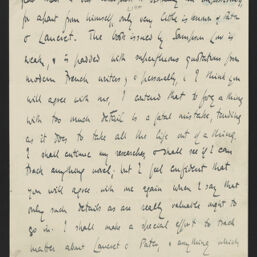 for apart from himself, only very little is known of Pater
& Lancret. The book issued by Sampson Low is
weak, & is padded with superfluous quotations from
modern French writers, & personally, & I think you
will agree with me, I contend that to give a thing
with too much detail is a fatal mistake, tending
as it does to take all the life out of a thing.
I shall continue my researches & shall see if I can
track anything novel; but I feel confident that
you will agree with me again when I say that
only such details as are really valuable ought to
go in. I shall make a special effort to track
matter about Lancret & Pater, & anything which